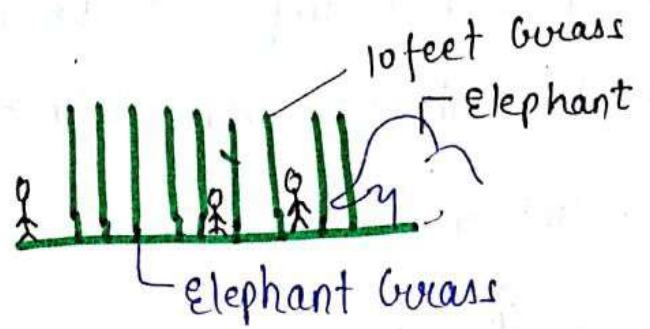 10 feet Grass
Elephant
Elephant Grass